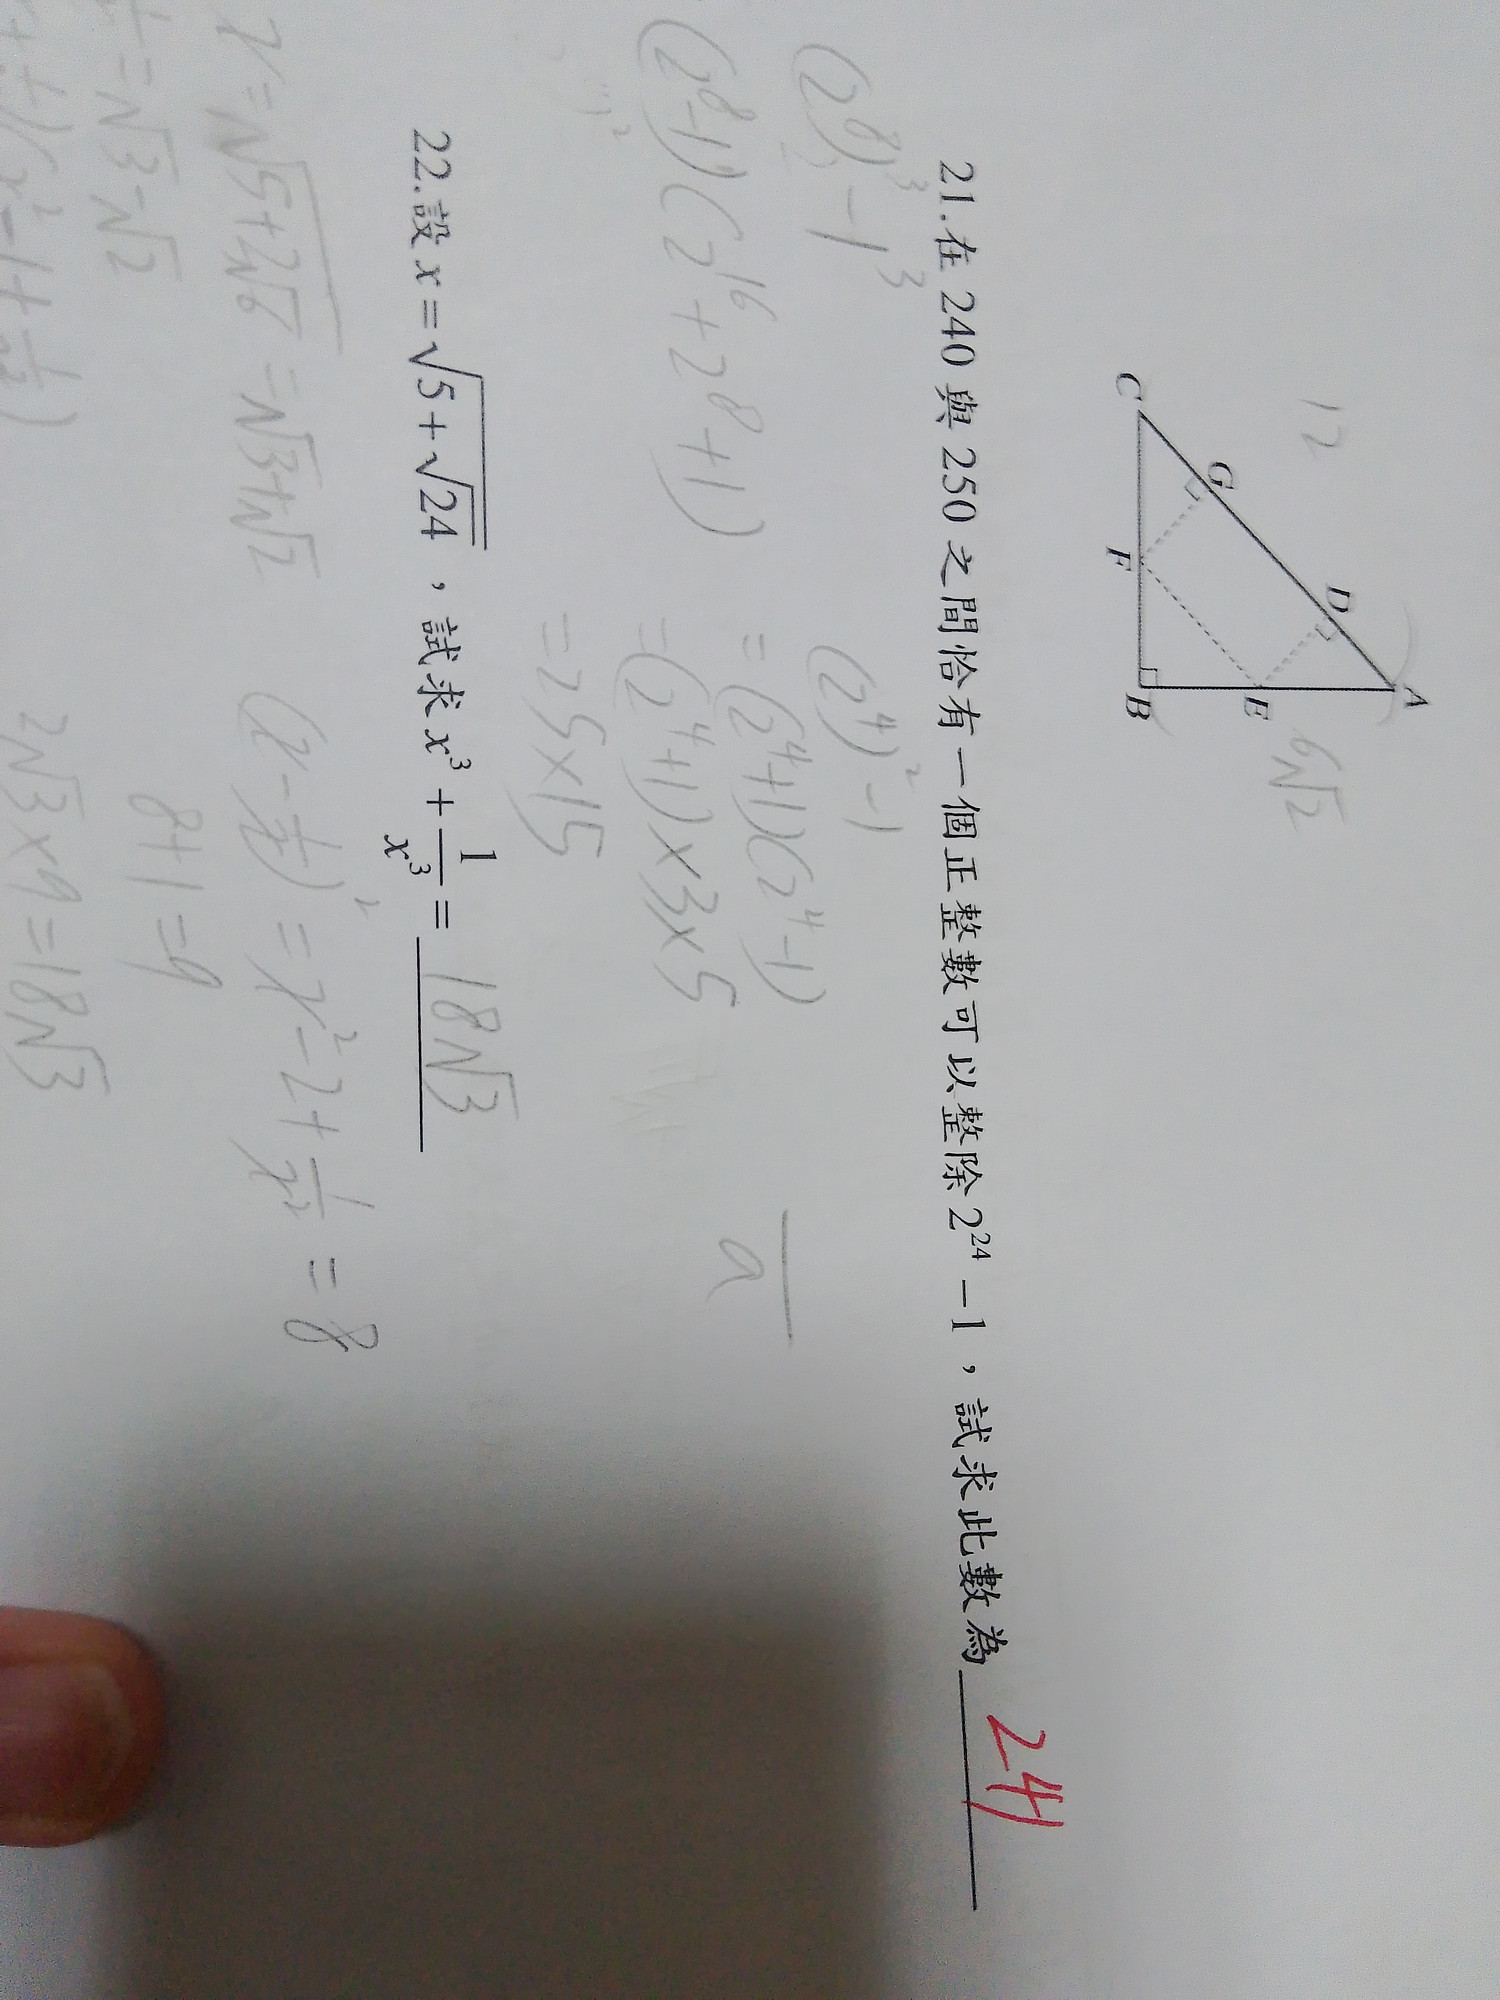 12
6√2
A
D
E
G
C
F
B
21.在 240 與 250 之間恰有一個正整數可以整除 2²⁴ − 1，試求此數為 241
(2⁸)³ − 1³
(2⁸−1)(2¹⁶+2⁸+1)
(2⁴)² − 1
= (2⁴+1)(2⁴−1)
= (2⁴+1)×3×5
= 25×15
a
22.設 x = √(5+√24)，試求 x³ + 1/x³ = 18√3
x = √(5+2√6) = √3+√2
= √3−√2
(x − 1/x)² = x² − 2 + 1/x² = 8
8+1=9
2√3×9=18√3